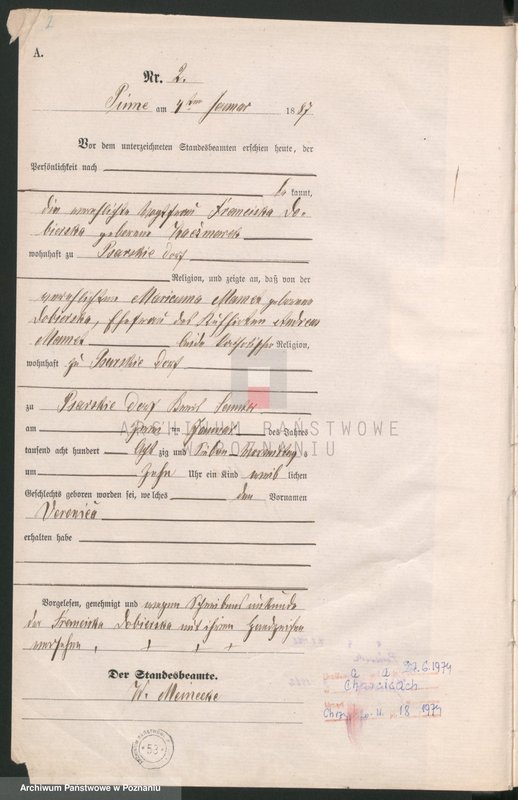 2
A.
Nr. 2.
Pinne am 4ten Januar 1887
Vor dem unterzeichneten Standesbeamten erschien heute, der
Persönlichkeit nach
be kannt,
die verehelichte Franciska Do-
bierska geborene Kaczmarek
wohnhaft zu Psarskie Dorf
Religion, und zeigte an, daß von der
verehelichten Marianna geborene
Dobierska, Ehefrau des Andreas
beide katholischer Religion,
wohnhaft zu Psarskie Dorf
zu Psarskie Dorf Kreis Samter
am ten Januar des Jahres
tausend acht hundert acht zig und sieben
um zehn Uhr ein Kind weib lichen
Geschlechts geboren worden sei, welches den Vornamen
Veronica
erhalten habe
Vorgelesen, genehmigt und wegen Schreibensunkunde
der Franciska Dobierska mit ihrem Handzeichen
versehen
Der Standesbeamte.
W. Meinecke
ARCHIWUM PAŃSTWOWE
W POZNANIU
53
27.6.1974
18 1974
Archiwum Państwowe w Poznaniu